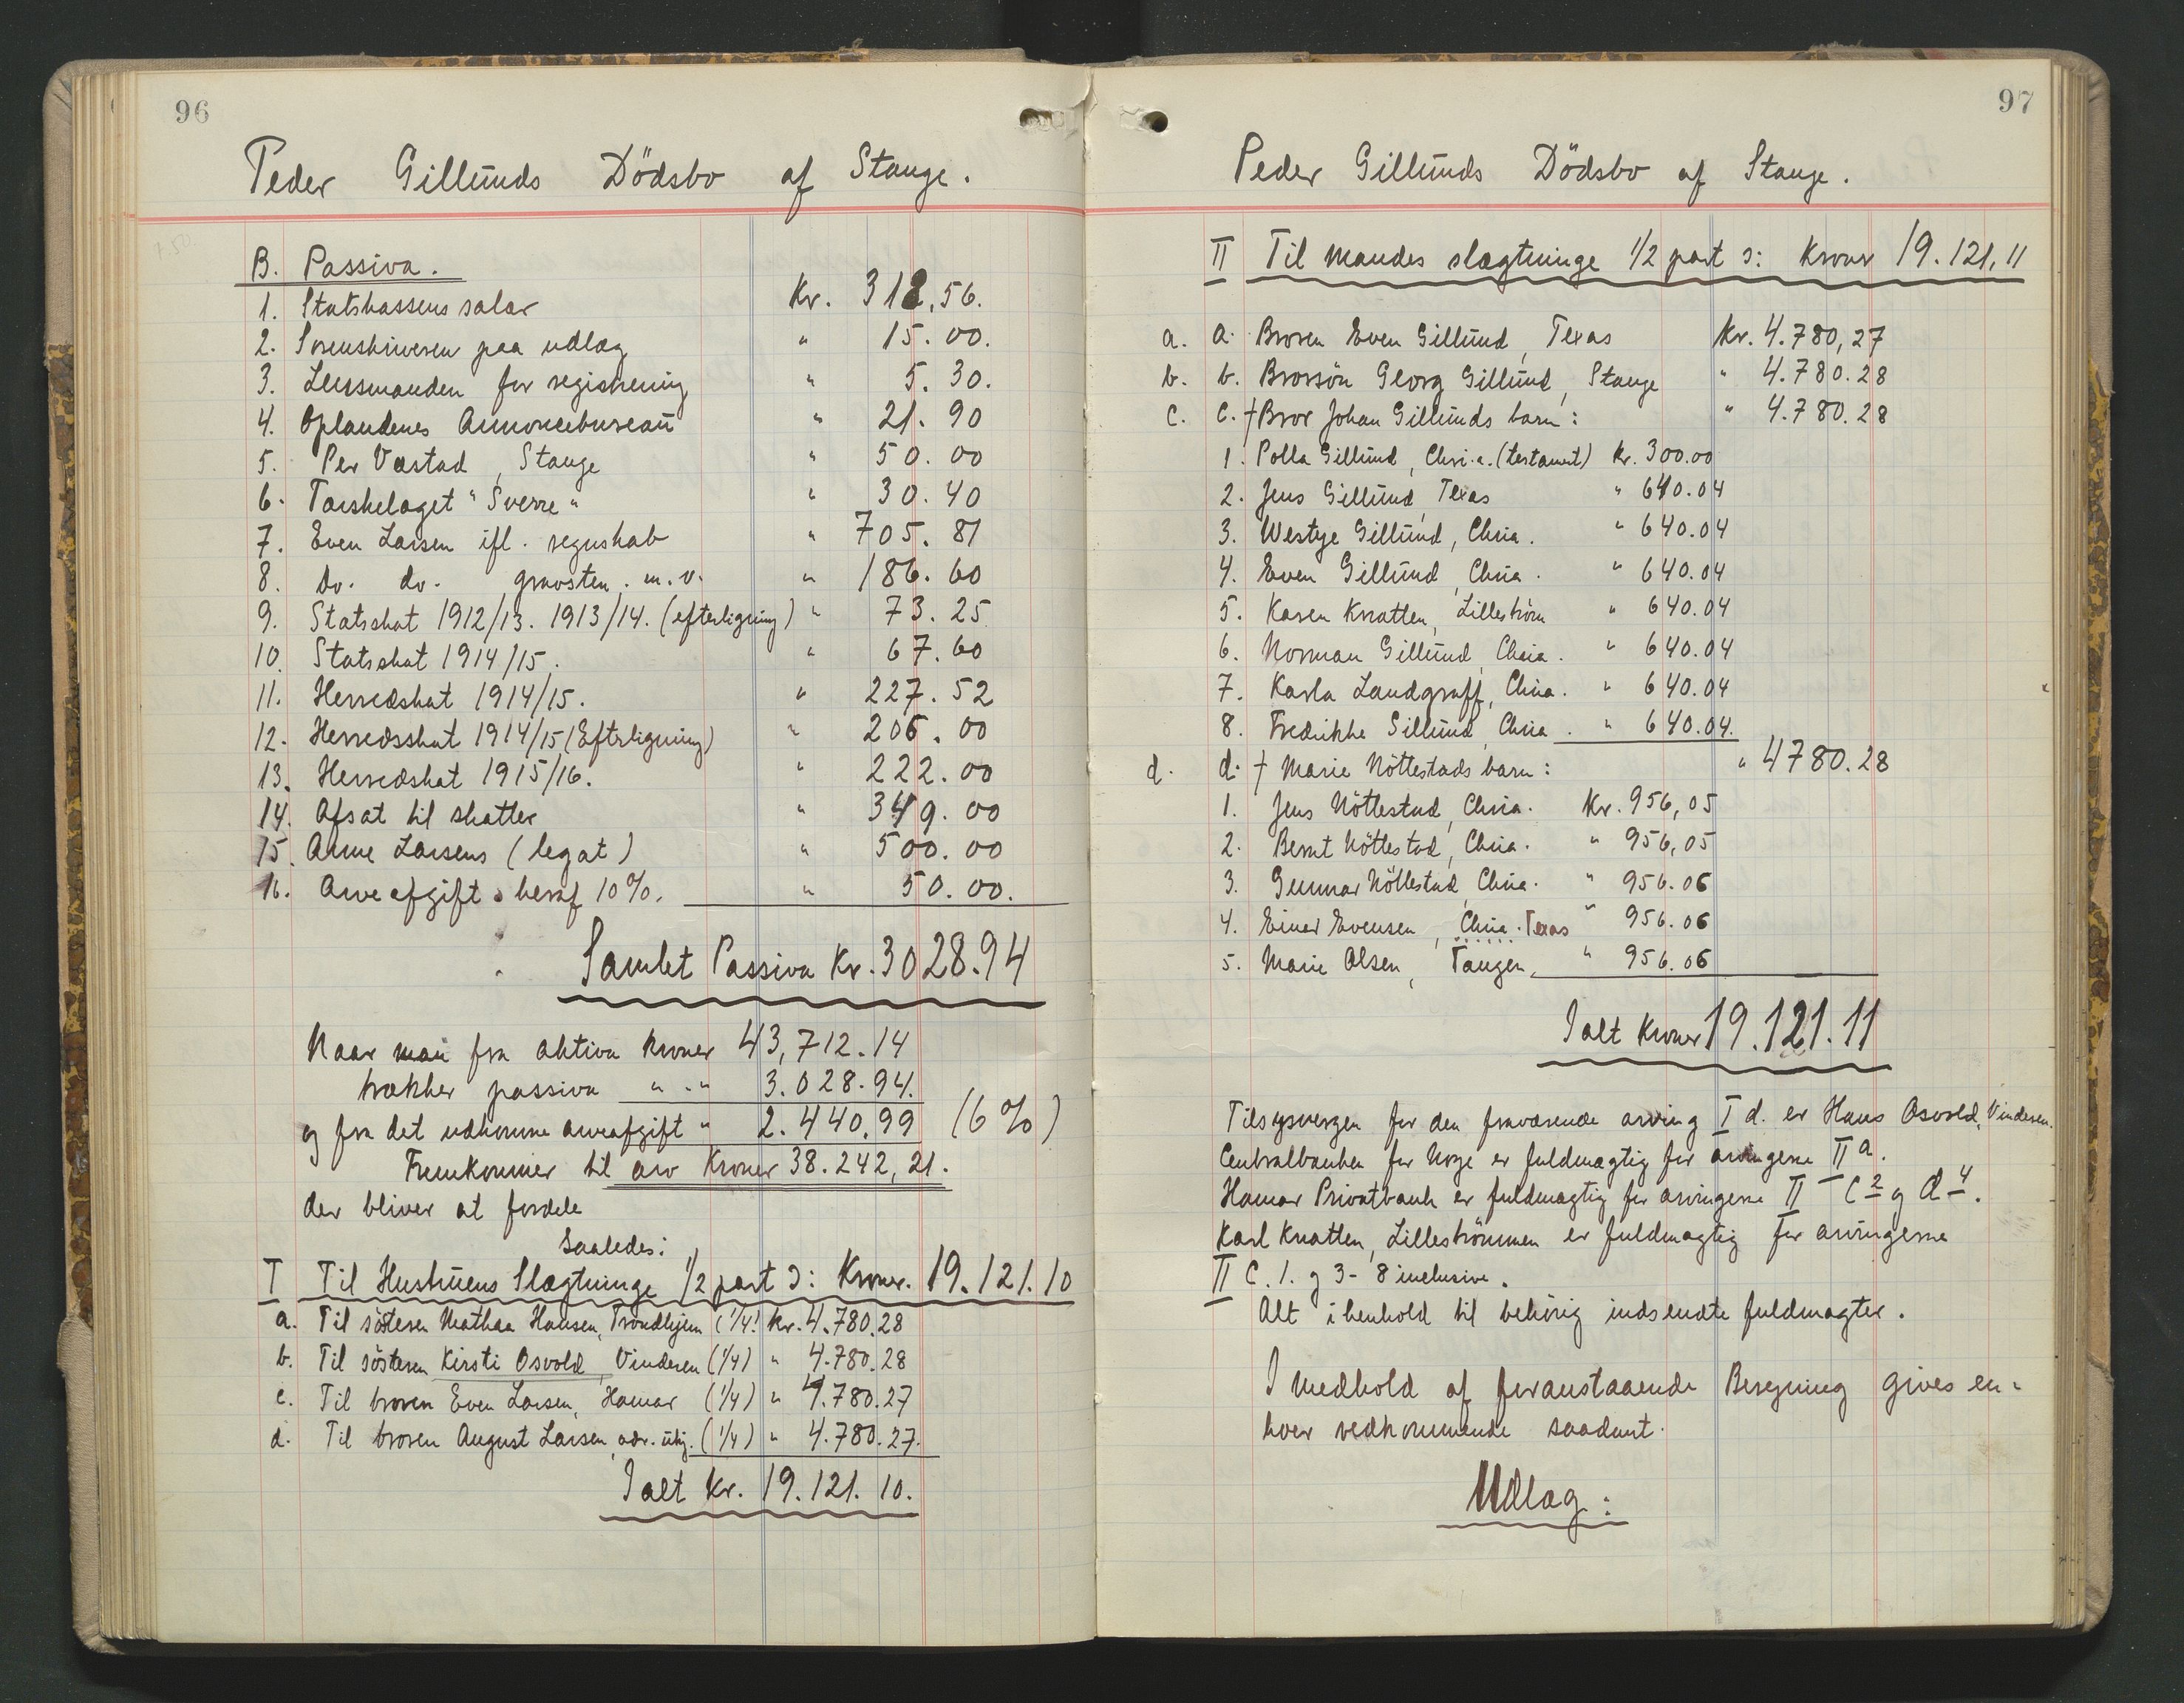 96
Peder Gillunds Dödsbo af Stange.
B. Passiva.
1. Statskassens salar Kr. 318,56.
2. Sorenskriveren paa udlæg " 15.00.
3. Lensmanden for registrering " 5.30.
4. Oplandenes Annoncebureau " 21.90
5. Per Vastad, Stange " 50.00
6. Torskelaget "Sverre" " 30.40
7. Even Larsen ifl. regnskab " 705.81
8. do. do. gravsten. m.v. " 186.60
9. Statsskat 1912/13. 1913/14. (efterligning) " 73.25
10. Statsskat 1914/15. " 67.60
11. Herredskat 1914/15. " 227.52
12. Herredsskat 1914/15 (Efterligning) " 206.00
13. Herredskat 1915/16. " 222.00
14. Afsat til skatter " 349.00
15. Anne Larsens (legat) " 500.00
16. Arveafgift heraf 10%. " 50.00.
Samlet Passiva Kr. 3028.94
Naar man fra aktiva Kroner 43,712.14
trækker passiva " - " 3.028.94.
og fra det udkomne arveafgift " 2.440.99 (6%)
Fremkommer til arv Kroner 38.242,21.
der bliver at fordele
saaledes:
I Til Hustruens Slægtninge 1/2 part ɔ: Kroner. 19.121.10
a. Til søsteren Mathea Hansen, Trondhjem (1/4) Kr. 4.780.28
b. Til søsteren Kirsti Osvold, Vinderen (1/4) " 4.780.28
c. Til broren Even Larsen, Hamar (1/4) " 4.780.27
d. Til broren August Larsen, adr. ubj. (1/4) " 4.780.27.
Ialt Kr. 19.121.10.
97
Peder Gillunds Dödsbo af Stange.
II Til Mandes slægtninge 1/2 part ɔ: Kroner 19.121,11
a. a. Broren Even Gillund, Texas Kr. 4.780,27
b. b. Brorsön Georg Gillund, Stange " 4.780.28
c. c. † Bror Johan Gillunds barn: " 4.780.28
1. Polla Gillund, Chri.a. (testament) Kr. 300.00
2. Jens Gillund, Texas " 640.04
3. Westye Gillund, Chria. " 640.04
4. Even Gillund, Chria. " 640.04
5. Karen Knatten, Lilleström " 640.04
6. Norman Gillund, Chria. " 640.04
7. Karla Landgraff, Chria. " 640.04
8. Fredrikke Gillund, Chria. " 640.04.
d. d. † Marie Nöttestads barn: " 4780.28
1. Jens Nöttestad, Chria. Kr. 956,05
2. Bernt Nöttestad, Chria. " 956,05
3. Gunnar Nöttestad, Chria. " 956.06
4. Einar Evensen, Chria. Texas " 956.06
5. Marie Olsen, Tangen, " 956.06
Ialt Kroner 19.121.11
Tilsynsvergen for den fraværende arving I d. er Hans Osvold, Vinderen.
Centralbanken for Norge er fuldmægtig for arvingerne II a.
Hamar Privatbank er fuldmægtig for arvingerne II c 2 og d 4.
Karl Knatten, Lilleströmmen er fuldmægtig for arvingerne
II C. 1. og 3- 8 inclusive.
Alt i henhold til behörig indsendte fuldmagter.
I medhold af foranstaaende Beregning gives en-
hver vedkommende saadant
Udlæg: